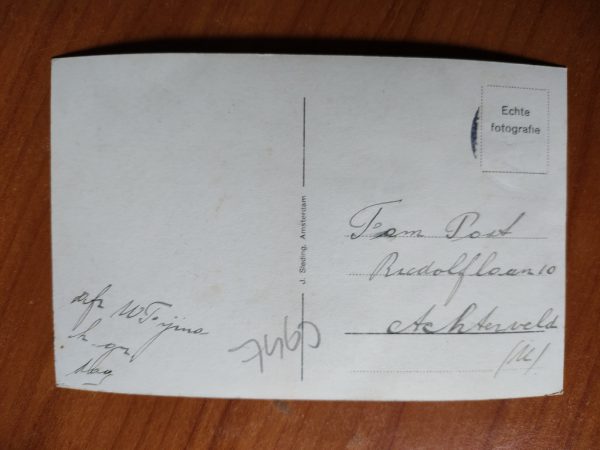 Echte
fotografie
J. Sleding, Amsterdam
Fam Post
Rudolflaan 10
Achterveld
afz W
h. gr.
dag